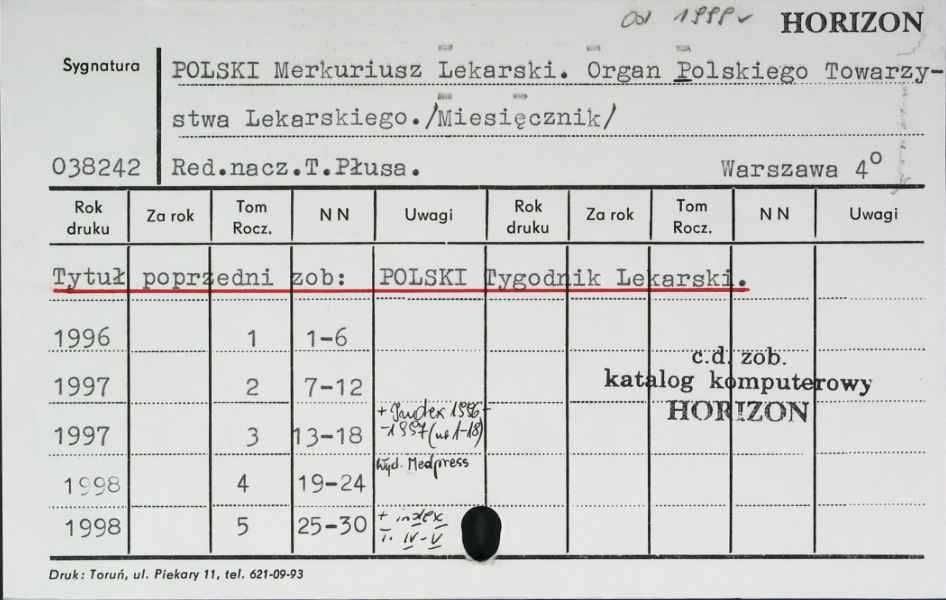 od 1999 HORIZON
Sygnatura POLSKI Merkuriusz Lekarski. Organ Polskiego Towarzy-
stwa Lekarskiego./Miesięcznik/
038242 Red.nacz.T.Płusa. Warszawa 4°
Rok druku Za rok Tom Rocz. NN Uwagi Rok druku Za rok Tom Rocz. NN Uwagi
Tytuł poprzedni zob: POLSKI Tygodnik Lekarski.
1996 1 1-6
c.d. zob.
1997 2 7-12 katalog komputerowy
+ Index 1996- HORIZON
1997 3 13-18 -1997 (nr 1-18)
wyd. Medpress
1998 4 19-24
1998 5 25-30 + index
T. IV-V
Druk: Toruń, ul. Piekary 11, tel. 621-09-93